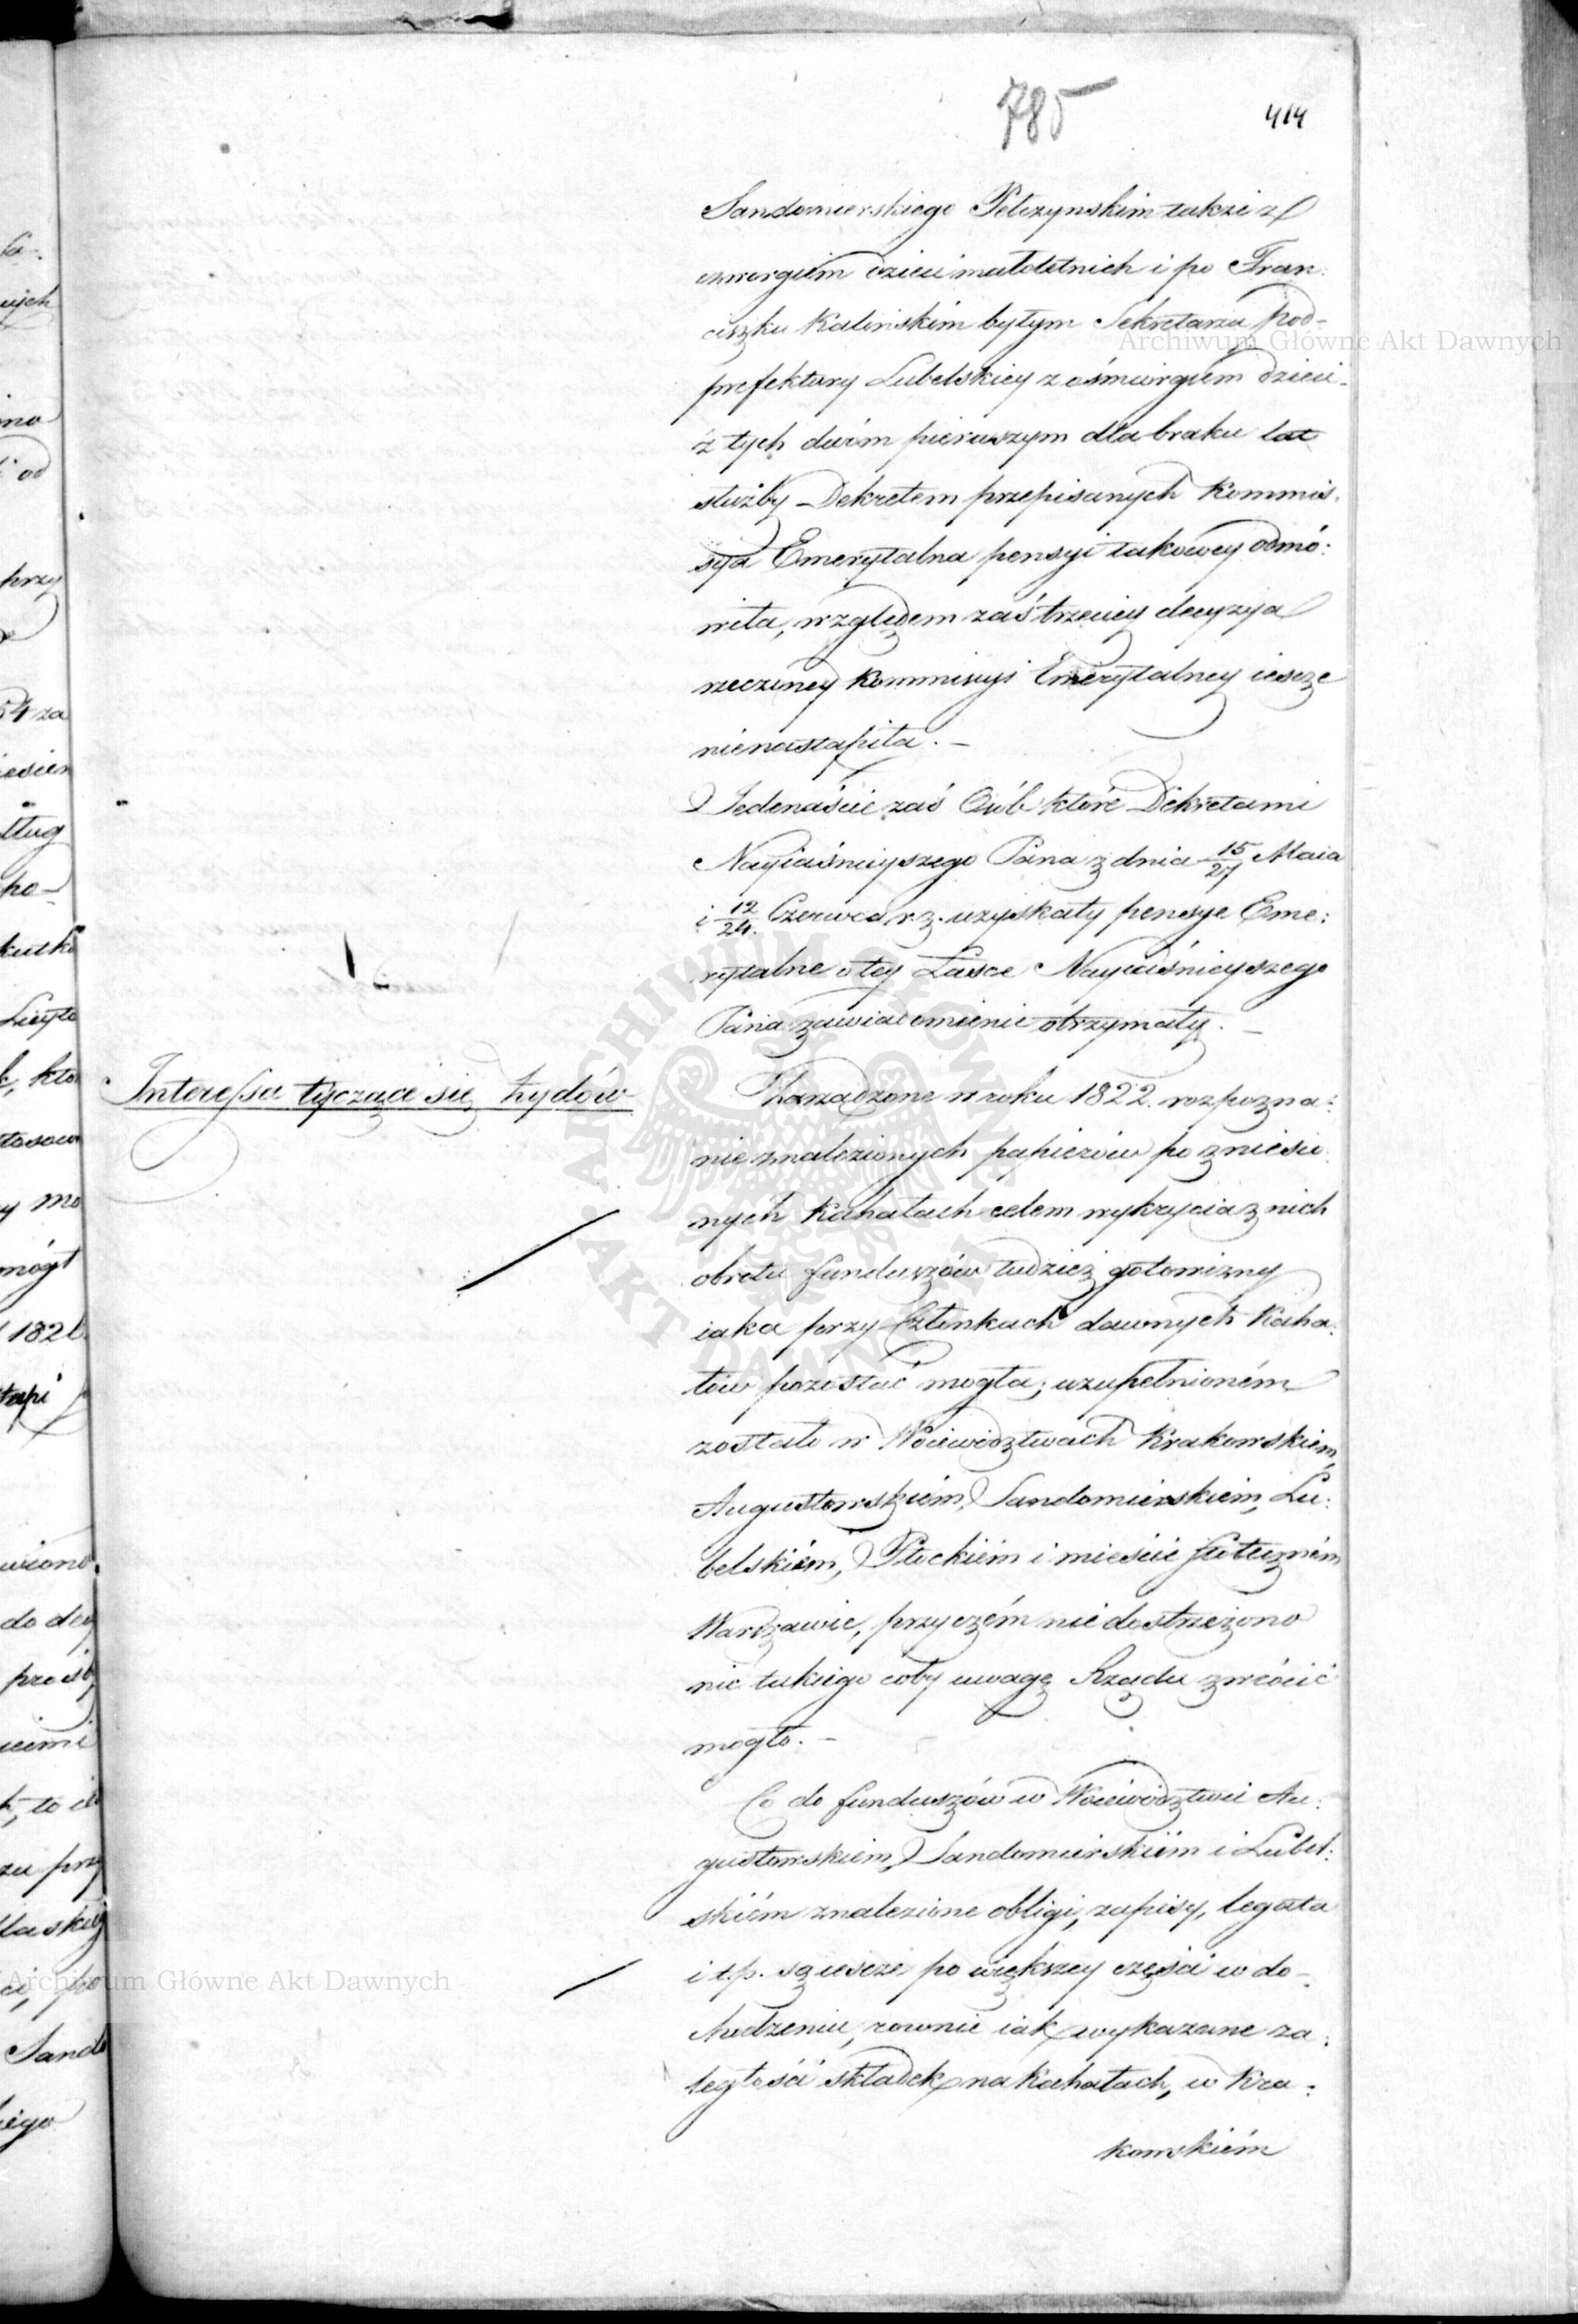 785
414
Sandomierskiego Pełczynskim także z
czworgiem dzieci małoletnich i po Fran:
ciszku Kalinskim byłym Sekretarzu Pod-
prefektury Lubelskiey z ośmiorgiem dzieci-
z tych dwóm pierwszym dla braku lat
służby Dekretem przepisanych Kommis:
sya Emerytalna pensyi takowey odmó:
wiła, względem zaś trzeciey decyzya
rzeczoney Kommisyi Emerytalney iescze
nienastąpiła. -
Jedenaście zaś Osób które Dekretami
Nayiaśnieyszego Pana z dnia 15/27 Maia
i 12/24. Czerwca r. z. uzyskały pensye Eme:
rytalne o tey Łasce Nayiaśnieyszego
Pana zawiadomienie otrzymały. -
Interessa tyczące się Żydów
Zarządzone w roku 1822. rozpozna:
nie znalezionych papierów po zniesio
nych Kahałach celem wykrycia z nich
obrotu funduszów tudzież gotowizny
iaka przy Członkach dawnych Kaha:
łów pozostać mogła; uzupełnioném
zostało w Woiewództwach Krakowskiem,
Augustowskiém, Sandomierskiem, Lu:
belskiém, Płockiém i mieście Stołeczném
Warszawie, przyczém nie dostrzeżono
nic takiego coby uwagę Rządu zwrócić
mogło. -
Co do funduszów w Woiewództwie Au:
gustowskiem, Sandomierskiém i Lubel:
skiém znalezione obligi, zapisy, legata
i t.p. są iescze po większey części w do-
chodzeniu, rownie iak wykazane za:
ległości składek na Kahałach, w Kra:
kowskiém
Archiwum Główne Akt Dawnych
Archiwum Główne Akt Dawnych
ARCHIWUM GŁÓWNE AKT DAWNYCH